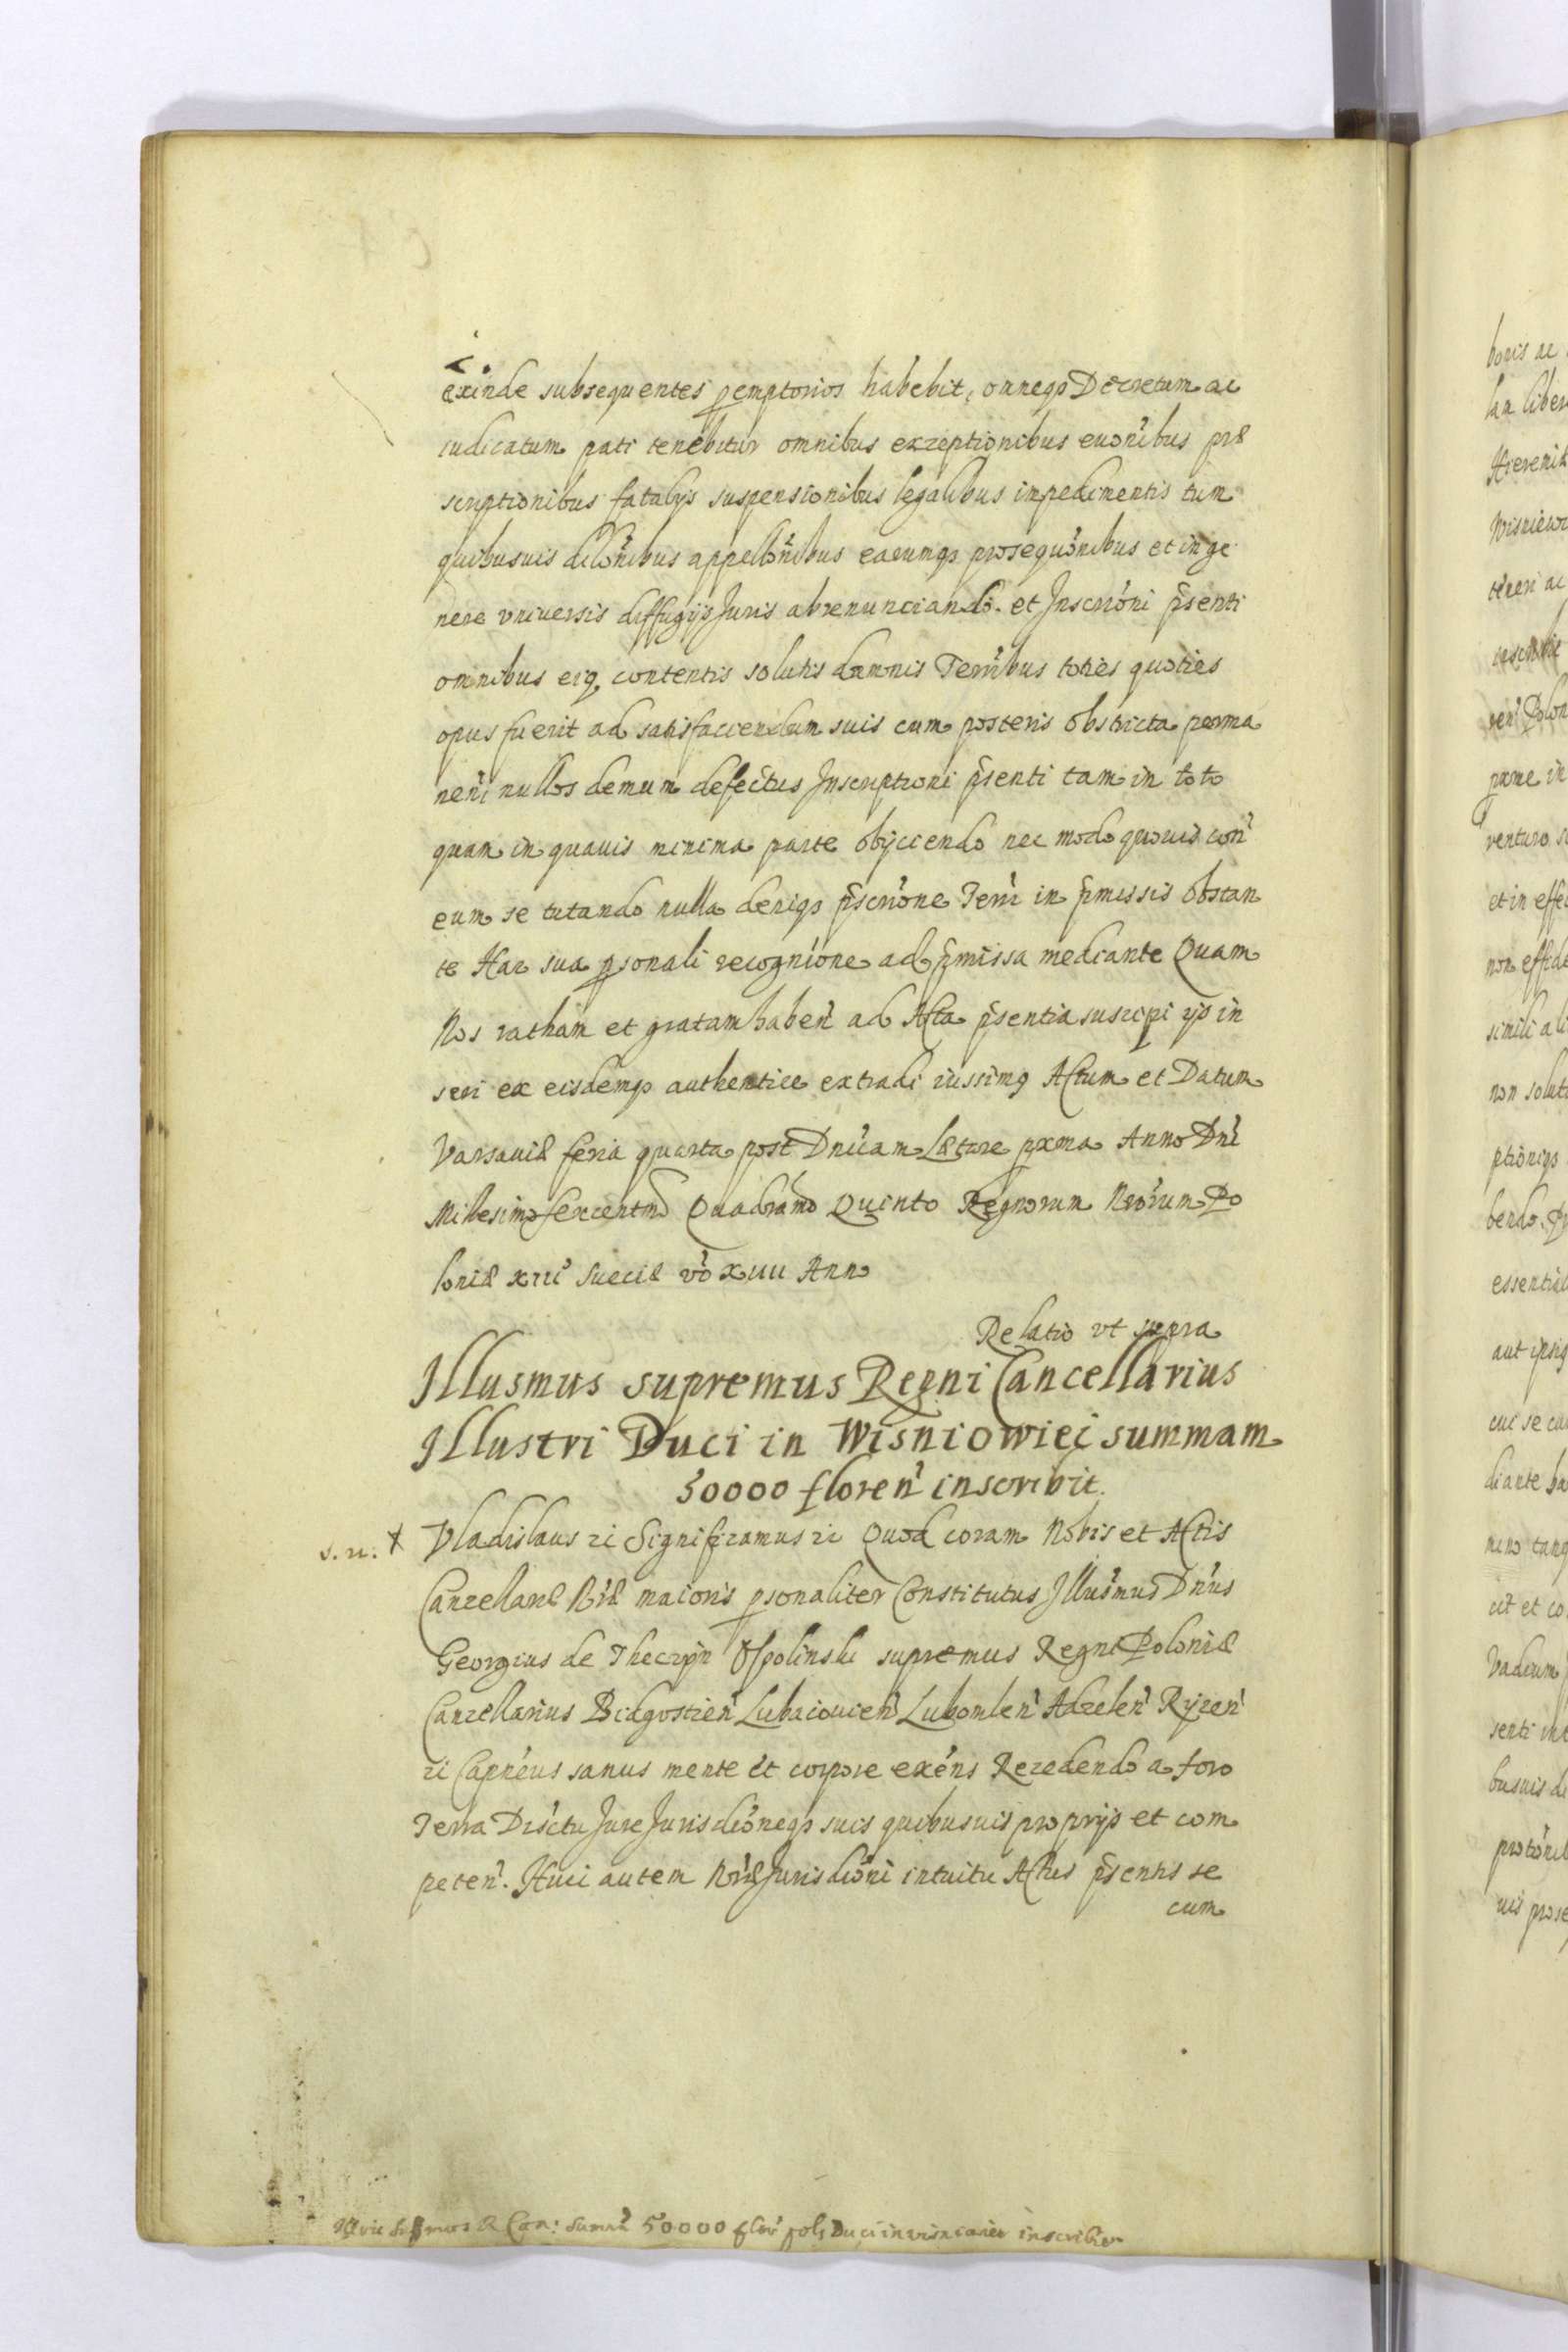 exinde subsequentes pemptorios habebit, omneqз Decretum ac
iudicatum pati tenebitur omnibus exzeptionibus euonibus præ
scriptionibus fatalijs suspensionibus legalibus impedimentis tum
quibusuis dilonibus appellonibus earumqз prosequonibus et in ge
nere vniuersis diffugijs Juris abrenunciando. et Inscrioni psenti
omnibus eiq contentis solutis damnis Terribus toties quoties
opus fuerit ad satisfaciendum suis cum posteris obstricta perma
neni nullos demum defectus Inscriptioni psenti tam in toto
quam in quauis minima parte obijciendo nec modo quouis con
eum se tutando nulla deniqз pscrione Terri in pmissis obstan
te Hac sua psonali recognione ad pmissa mediante Quam
Nos ratham et gratam haben ad Acta psentia suscipi ijs in
seri ex eisdemqз authentice extradi iussimq Actum et Datum
Varsauiæ feria quarta post Dnicam Lætare pxma Anno Dni
Milesimo sexcentmo Quadramo Quinto Regnorum Nrorum Po
loniæ xiii Sueciæ vo xiiii Anno
Relatio vt supra
Illusmus supremus Regni Cancellarius
Illustri Duci in Wisniowiec summam
50000 floren inscribit.
s. n. Vladislaus zc Significamus zc Quod coram Nobis et Actis
Canzellariæ Riæ maioris psonaliter Constitutus Illusmus Dnus
Georgius de Theczyn Ossolinski supremus Regni Poloniæ
Canzellarius Bidgostien Lubaczouien Lubomlen Adzelen Ryzen
zc Capneus sanus mente et corpore exens Rezedendo a foro
Terra Disctu Jure Jurisdioneqз suis quibusuis proprijs et com
peten. Huic autem Nræ Jurisdioni intuitu Actus psentis se
cum
50000 Duci in inscribit